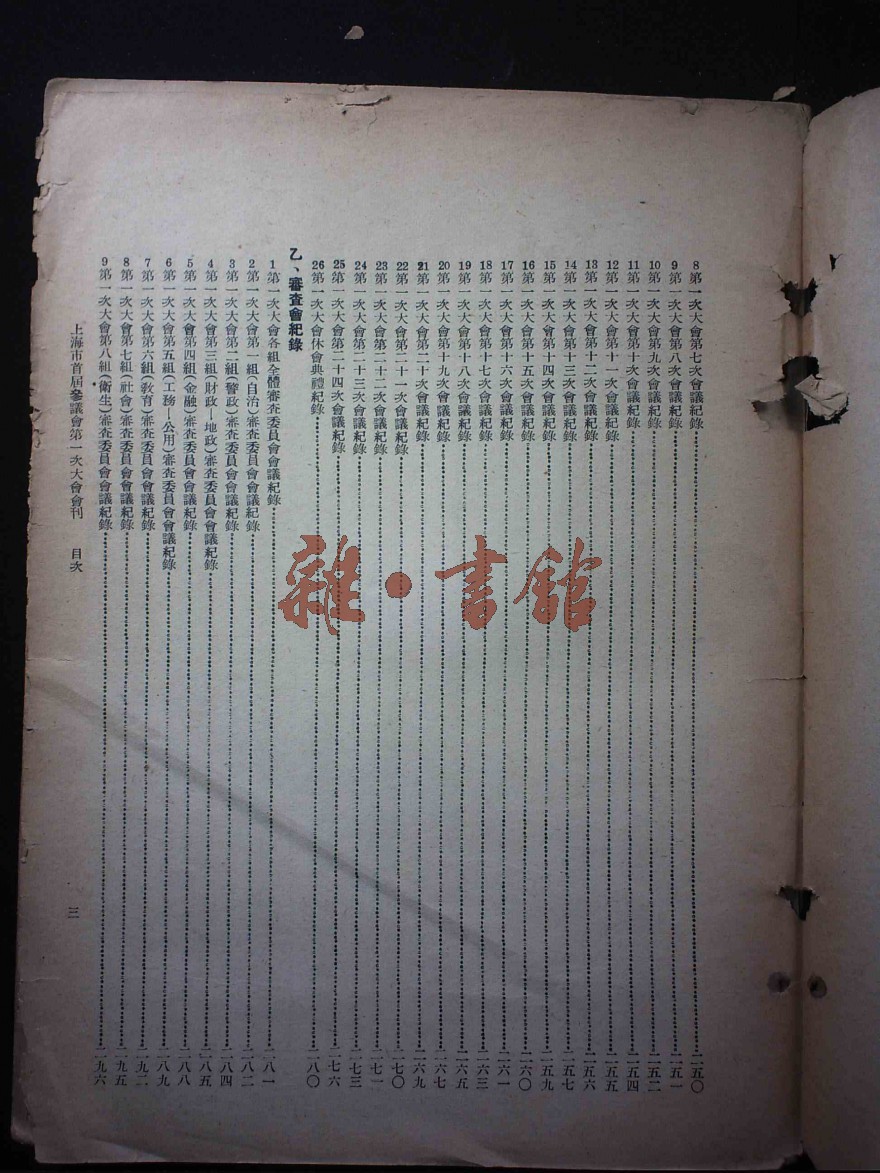 8 第一次大會第七次會議紀錄…………二五〇
9 第一次大會第八次會議紀錄…………二五一
10 第一次大會第九次會議紀錄…………二五二
11 第一次大會第十次會議紀錄…………二五四
12 第一次大會第十一次會議紀錄…………二五五
13 第一次大會第十二次會議紀錄…………二五六
14 第一次大會第十三次會議紀錄…………二五七
15 第一次大會第十四次會議紀錄…………二五九
16 第一次大會第十五次會議紀錄…………二六〇
17 第一次大會第十六次會議紀錄…………二六一
18 第一次大會第十七次會議紀錄…………二六三
19 第一次大會第十八次會議紀錄…………二六五
20 第一次大會第十九次會議紀錄…………二六七
21 第一次大會第二十次會議紀錄…………二六九
22 第一次大會第二十一次會議紀錄…………二七〇
23 第一次大會第二十二次會議紀錄…………二七一
24 第一次大會第二十三次會議紀錄…………二七三
25 第一次大會第二十四次會議紀錄…………二七六
26 第一次大會休會典禮紀錄…………二八〇
乙、審查會紀錄
1 第一次大會各組全體審查委員會會議紀錄…………二八一
2 第一次大會第一組(自治)審查委員會會議紀錄…………二八二
3 第一次大會第二組(警政)審查委員會會議紀錄…………二八四
4 第一次大會第三組(財政—地政)審查委員會會議紀錄…………二八五
5 第一次大會第四組(金融)審查委員會會議紀錄…………二八八
6 第一次大會第五組(工務—公用)審查委員會會議紀錄…………二八九
7 第一次大會第六組(教育)審查委員會會議紀錄…………二九二
8 第一次大會第七組(社會)審查委員會會議紀錄…………二九五
9 第一次大會第八組(衛生)審查委員會會議紀錄…………二九六
上海市首屆參議會第一次大會會刊 目次
三
雜·書館